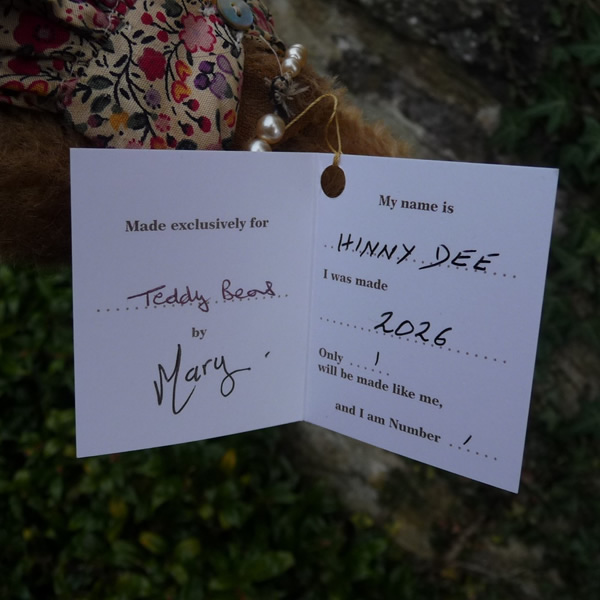 Made exclusively for
Teddy Bears
by
Mary
My name is
HINNY DEE
I was made
2026
Only 1
will be made like me,
and I am Number 1